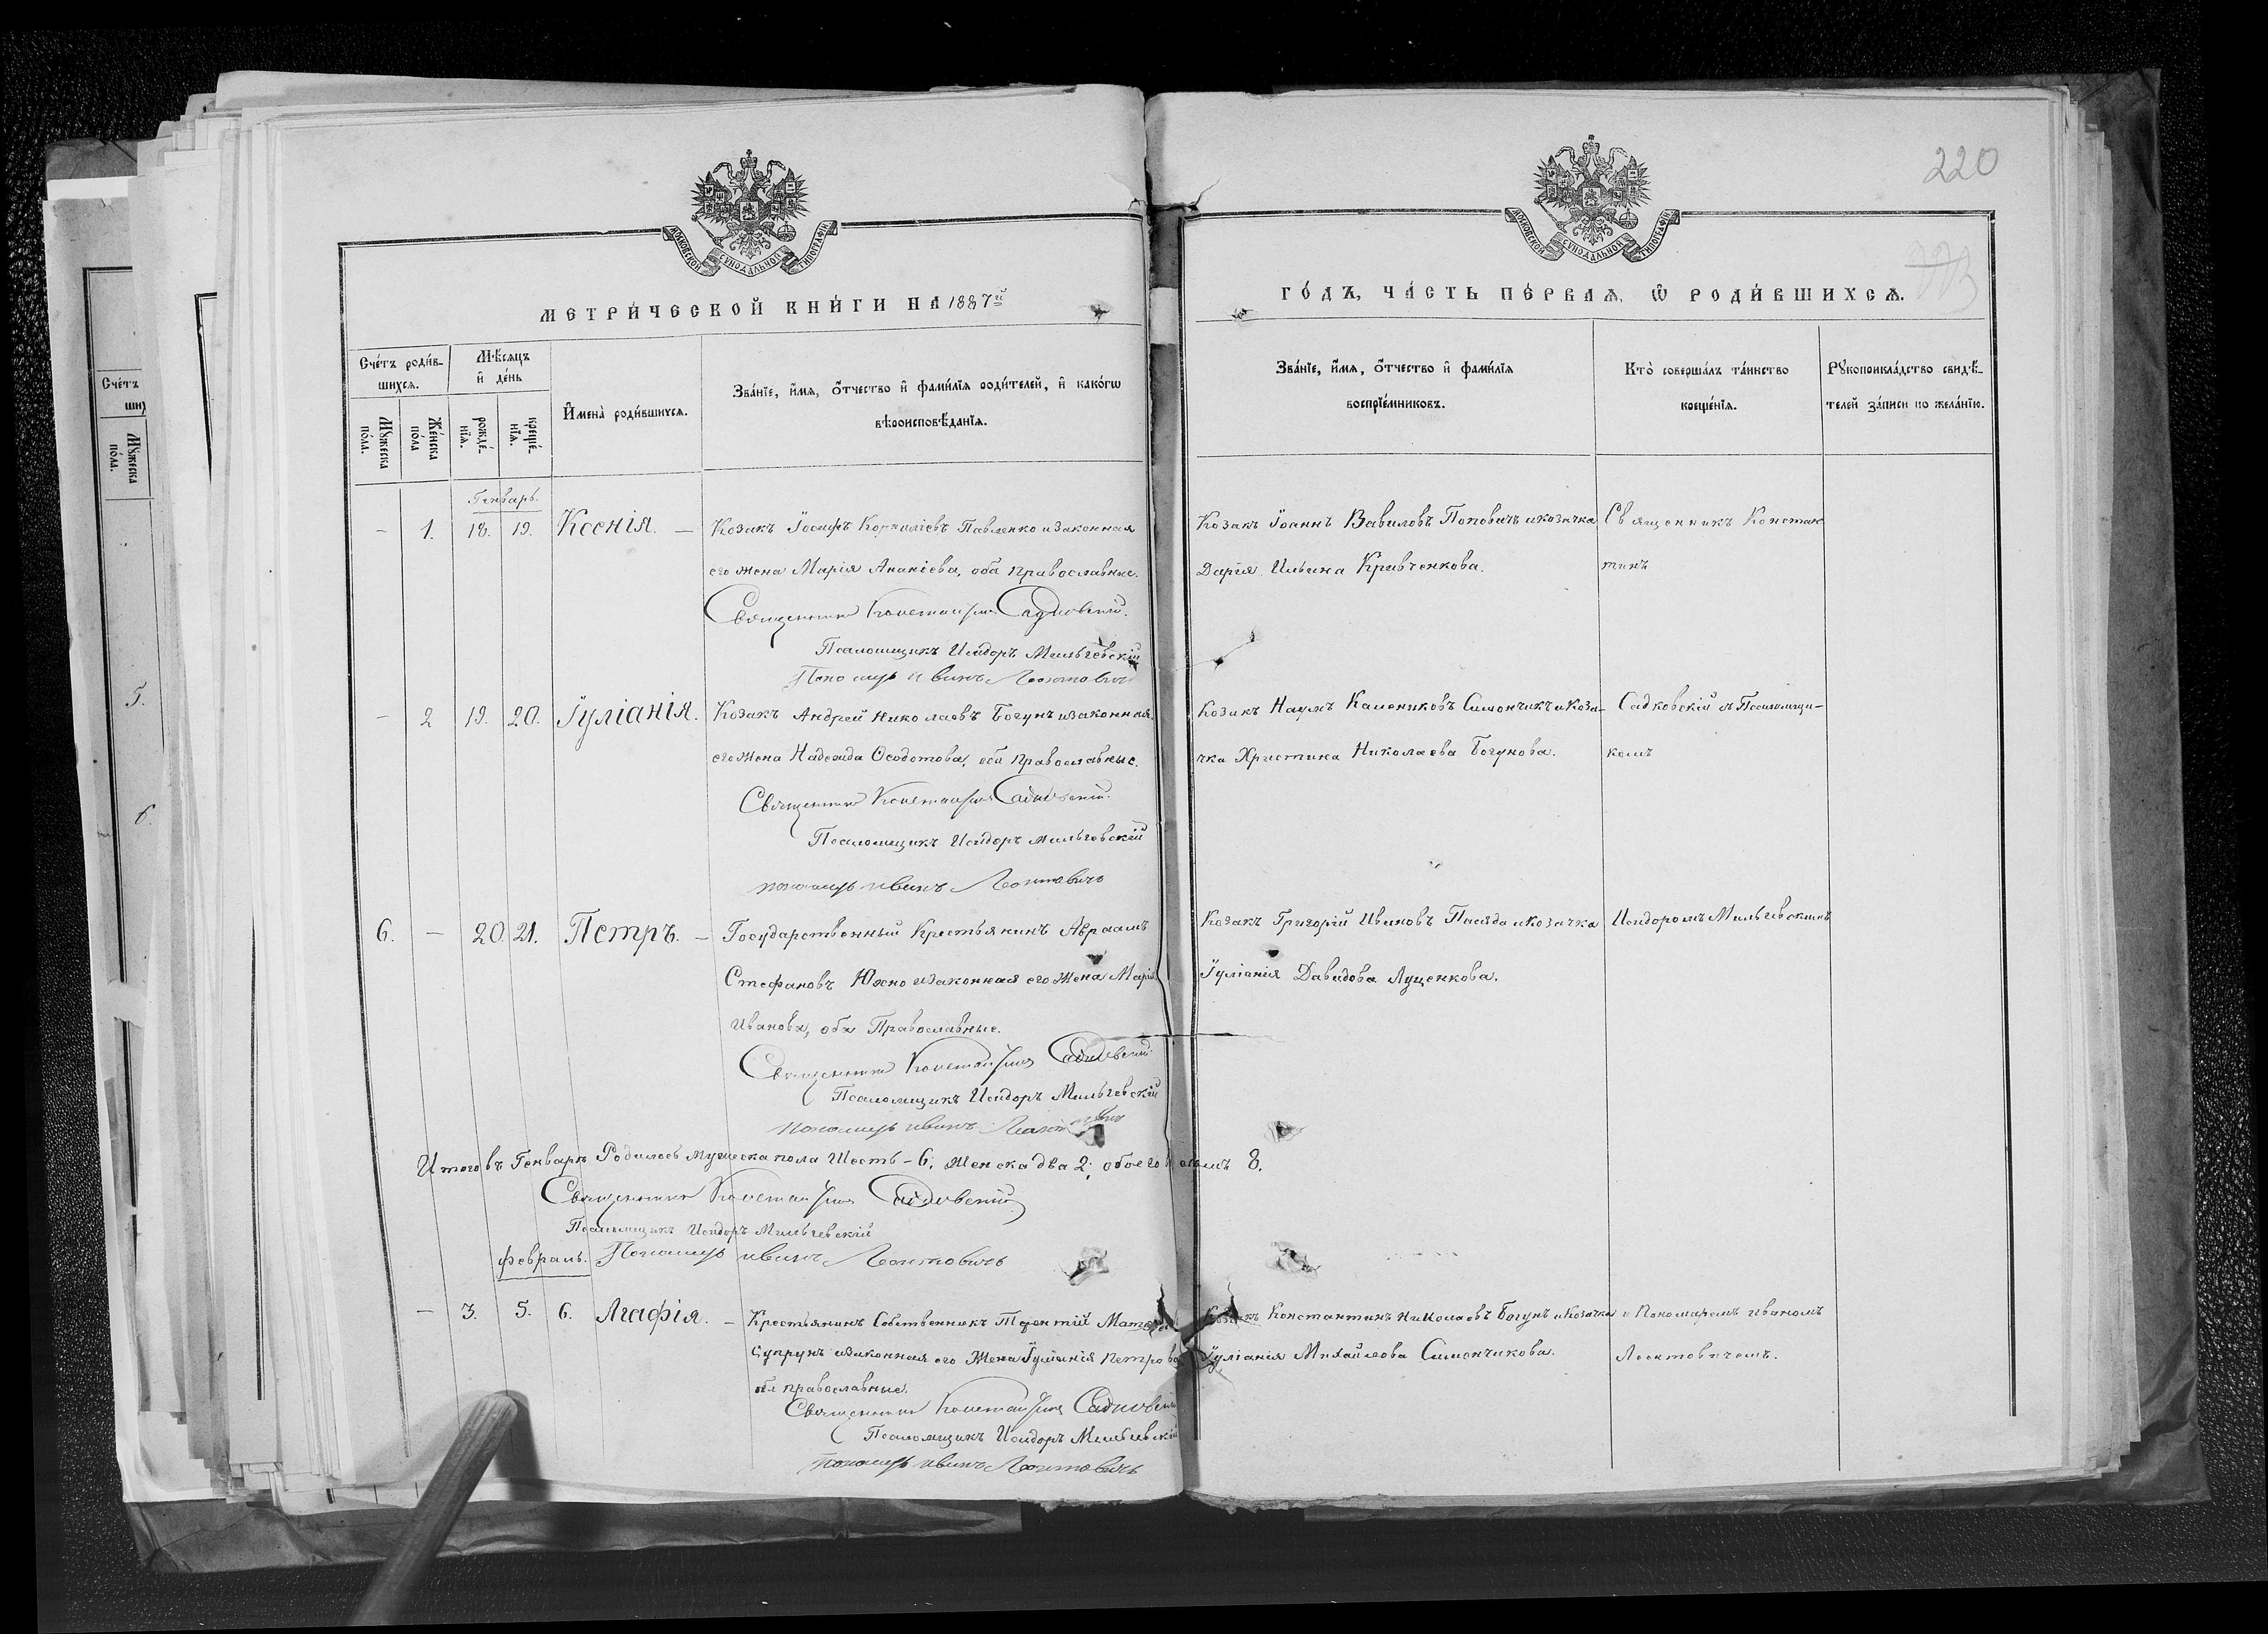 220
МОСКОВСКОЙ СѴНОДАЛЬНОЙ ТИПОГРАФІИ
МОСКОВСКОЙ СѴНОДАЛЬНОЙ ТИПОГРАФІИ
МЕТРИ́ЧЕСКОЙ КНИ́ГИ НА 1887й
ГО́ДЪ, ЧА́СТЬ ПЕ́РВАЯ, Ѿ РОДИ́ВШИХСЯ.
Сче́тъ роди́в-
шихся.
Мѣ́сяцъ
и҆ де́нь
Мꙋ́жеска по́ла.
Же́нска по́ла
рожде́-нїя.
креще́-нїя.
И҆мена̀ роди́вшихся.
Зва́нїе, и҆́мя, ѻ҆́тчество и҆ фами́лїя роди́телей, и҆ како́гѡ
вѣроисповѣ́данїя.
Зва́нїе, и҆́мя, ѻ҆́тчество и҆ фами́лїя
воспрїе́мниковъ.
Кто̀ соверша́лъ та́инство
креще́нїя.
Рꙋкоприкла́дство свидѣ́-
телей за́писи по жела́нїю.
Сче́тъ
ших
Мꙋ́жеска по́ла.
5.
6.
Генварь.
– 1. 18. 19. Ксенія. – Козакъ Іосифъ Корниліевъ Павленко и законная
его жена Марія Ананіева, оба православные.
Священникъ Константинъ Садковскій.
Псаломщикъ Исидоръ Мильчевскій
Пономарь Иванъ Леонтовичъ
Козакъ Іоаннъ Вавиловъ Поповичъ и козачка
Дарія Ильина Кривченкова.
Священникъ Констан
тинъ
– 2 19. 20. Іуліанія. Козакъ Андрей Николаевъ Богунъ и законная
его жена Надежда Ѳеодотова, оба православные.
Священникъ Константинъ Садковскій.
Псаломщикъ Исидоръ Мильчевскій
пономарь Иванъ Леонтовичъ
Козакъ Наумъ Каленіковъ Симончикъ и коза-
чка Христина Николаева Богунова.
Садковскій съ Псаломщи-
комъ
6. – 20. 21. Петръ. – Государственный Крестьянинъ Авраамъ
Стефановъ Юхно и законная его жена Марія
Иванова, оба Православные.
Священникъ Константинъ Садковскій
Псаломщикъ Исидоръ Мильчевскій
пономарь Иванъ Леонтовичъ
Козакъ Григорій Ивановъ и козачка
Іуліанія Давидова Луценкова.
Исидоромъ Мильчевскимъ
Итого въ Генварѣ Родилось мужеска пола Шесть – 6; женска два 2; обоего восемъ 8.
Священникъ Константинъ Садковскій.
Псаломщикъ Исидоръ Мильчевскій
Пономарь Иванъ Леонтовичъ
Февраль.
– 3. 5. 6. Агафія. – Крестьянинъ Собственникъ Терентій
Супрунъ и законная его жена Іуліанія Петрова
оба православные.
Священникъ Константинъ Садковскій
Псаломщикъ Исидоръ Мильчевскій
пономарь Иванъ Леонтовичъ
Козакъ Константинъ Николаевъ Богунъ и Козачка
Іуліанія Михайлова Симончикова.
и Пономаремъ Иваномъ
Леонтовичемъ.